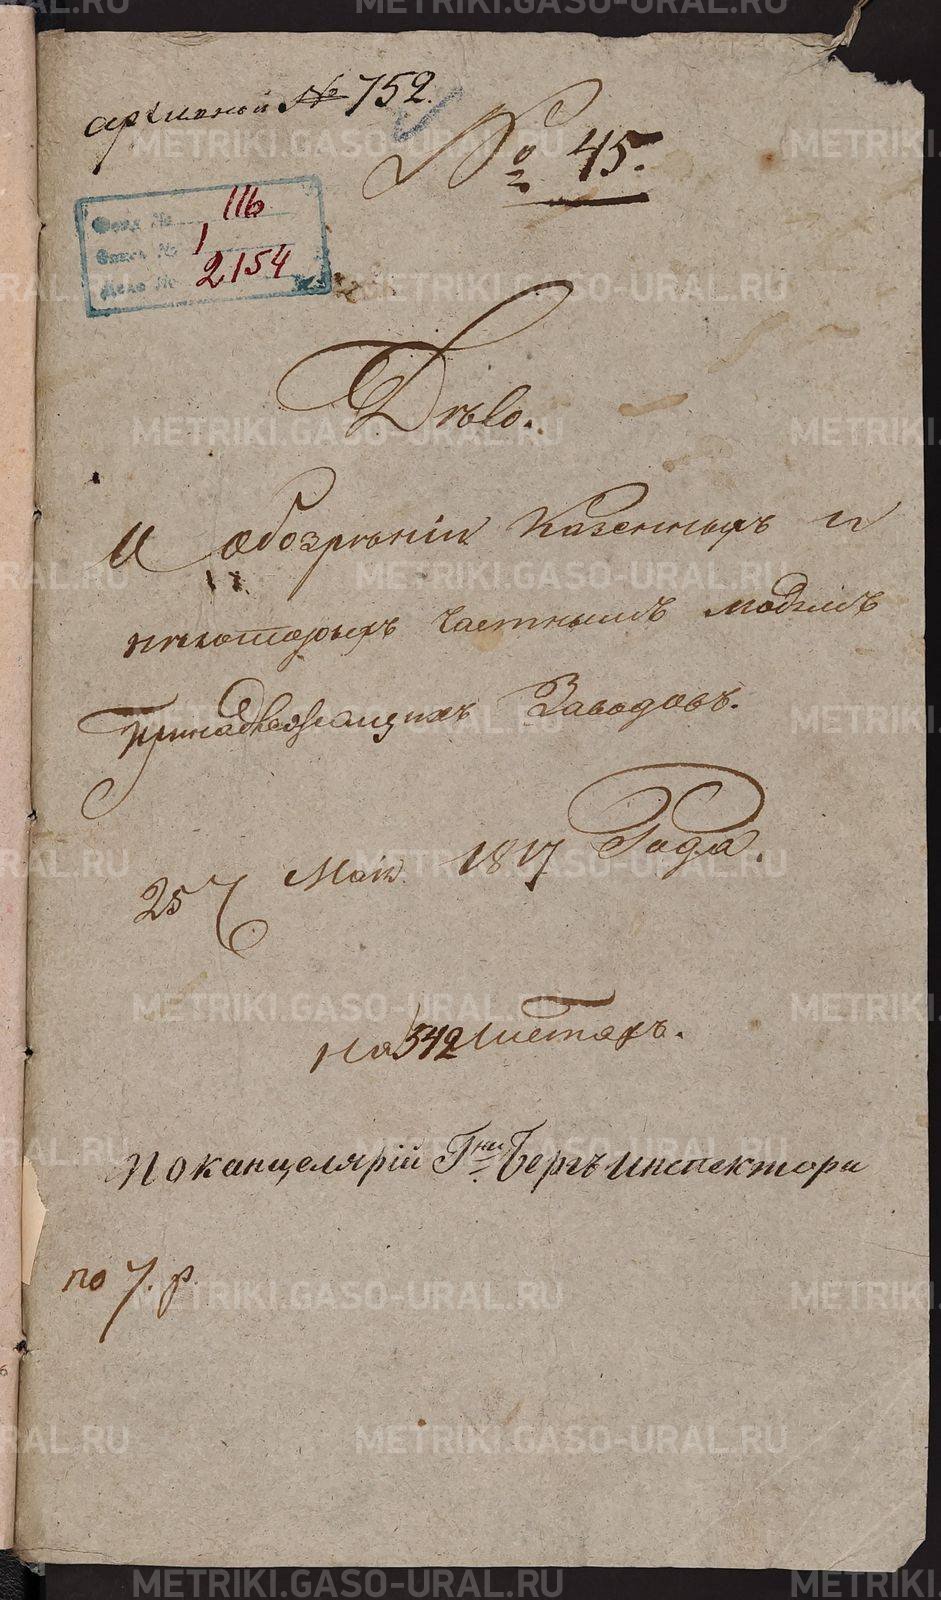 архивной № 752.
№ 45.
Фонд № 116
Опись № 1
Дело № 2154
Дѣло.
обозрѣнии Казенныхъ и
нѣкоторыхъ частнымъ людямъ
Принадлежащихъ Заводовъ.
25 Мая 1817 Года.
На 342 листахъ.
По канцелярій Гна Бергъ Инспектора
по 7. р.
METRIKI.GASO-URAL.RU